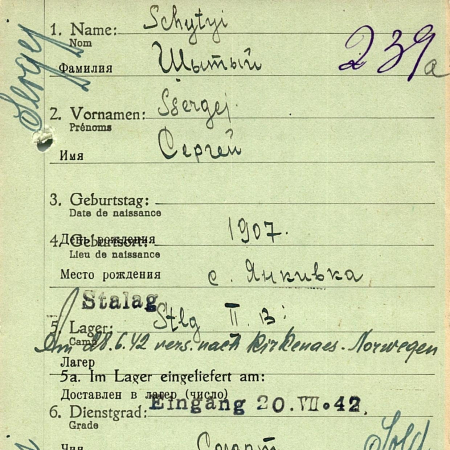 Sergej
1. Name: Schytyi
Nom
Фамилия Шытый
239a
2. Vornamen: Ssergej
Prénoms
Имя Сергей
3. Geburtstag:
Date de naissance
День рождения 1907.
4. Geburtsort:
Lieu de naissance
Место рождения с. Янкивка
Stalag
5. Lager: Stlg II. B:
Camp
Am 28.6.42 vers. nach Kirkenaes-Norwegen
Лагер
5a. Im Lager eingeliefert am:
Доставлен в лагер (число)
Eingang 20. VII. 42.
6. Dienstgrad:
Grade
Чин Солдат
Sold